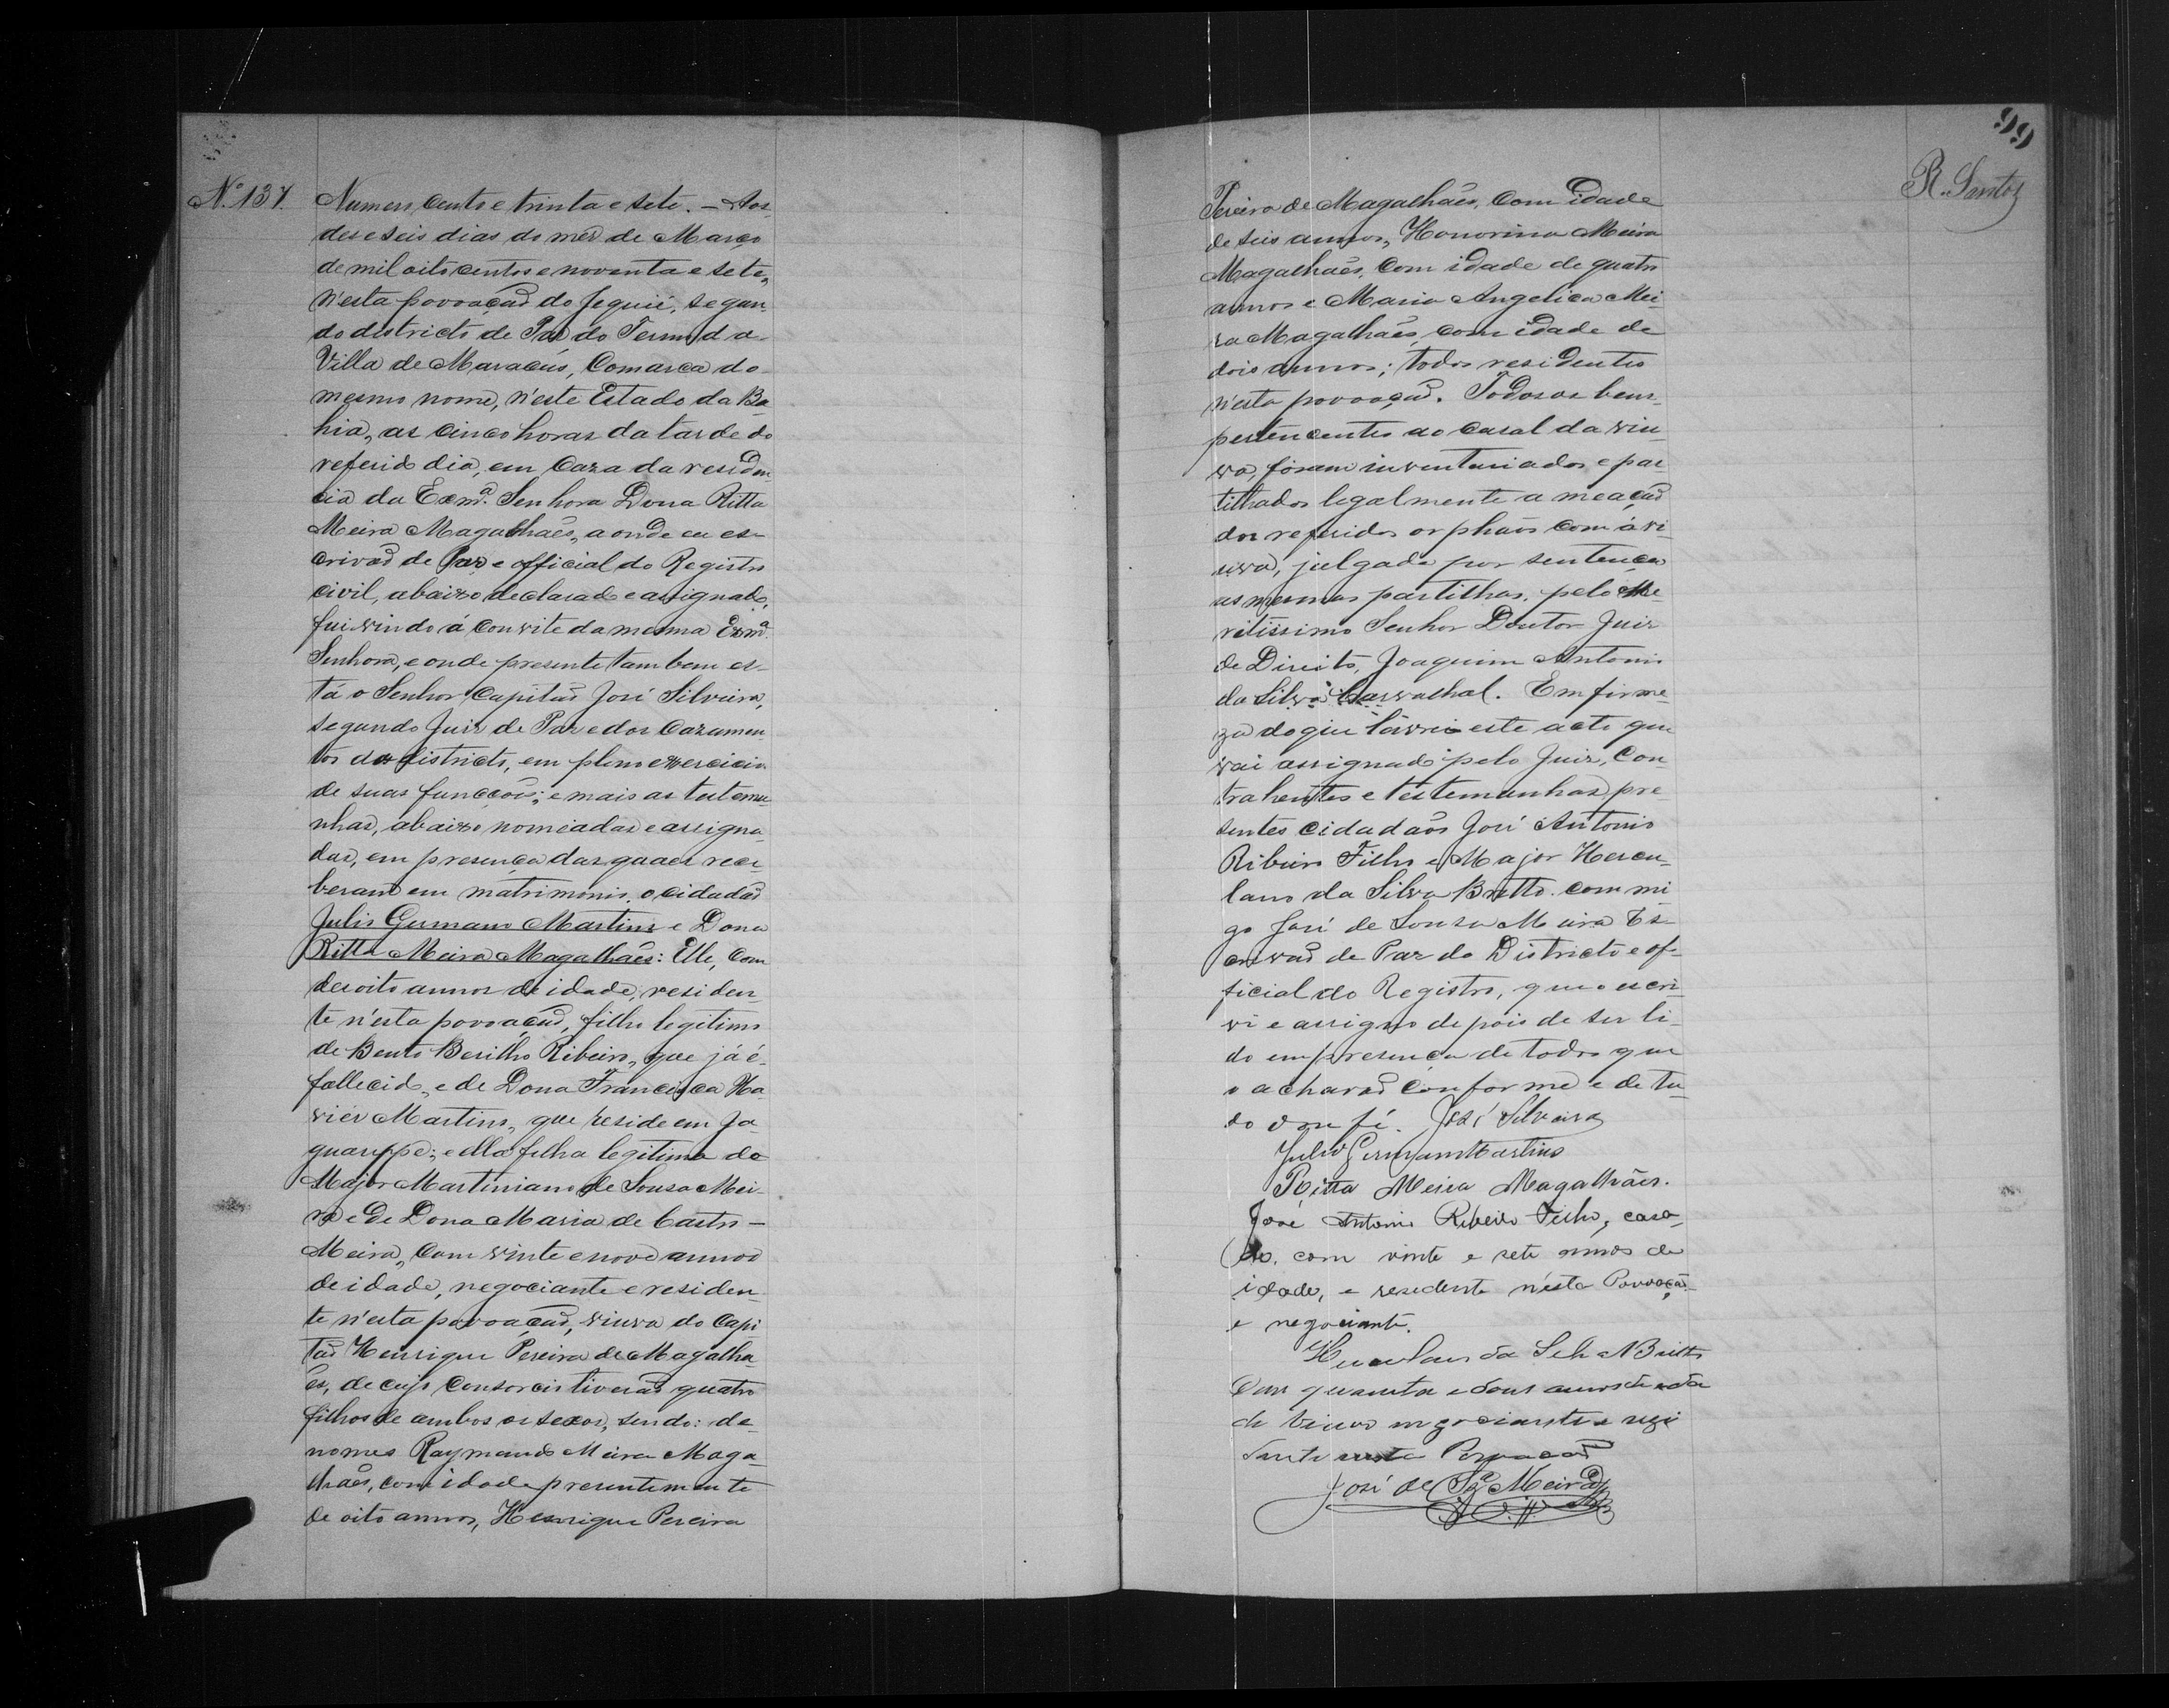 Nº 137. Numero cento e trinta e sete. — Aos
deseseis dias do mês de Março
de mil oito centos e noventa e sete,
n'esta povoação do Jequié, segun-
do districto de Paz do Termo da
Villa de Maracás, Comarca do
mesmo nome, n'este Estado da Ba-
hia, as cinco horas da tarde do
referido dia, em Caza da residen-
cia da Exmª. Senhora Dona Ritta
Meira Magalhães, a onde eu es-
crivão de Paz e official do Registro
civil, abaixo declarado e assignado,
fui vindo á convite da mesma Exmª.
Senhora, e onde presente tambem es-
tá o Senhor Capitão José Silveira,
segundo Juiz de Paz e dos Cazamen-
tos do districto, em pleno exercicio
de suas funcções; e mais as testemu-
nhas, abaixo nomeadas e assigna-
das, em presença das quaes rece-
beram em matrimonio, o cidadão
Julio Germano Martins e Dona
Ritta Meira Magalhães: Elle, com
desoito annos de idade, residen-
te n'esta povoação, filho legitimo
de Bento Ribeiro, que já é
fallecido, e de Dona Francisca Xa-
vier Martins, que reside em Ja-
guaripe; e ella filha legitima do
Major Martiniano de Sousa Mei-
ra e de Dona Maria de Castro —
Meira, com vinte e nove annos
de idade, negociante e residen-
te n'esta povoação, viuva do Capi-
tão Henrique Pereira de Magalha-
ẽs, de cujo consorcio tiverão quatro
filhos de ambos os sexos, sendo: de
nomes Raymundo Meira Maga-
lhães, com idade presentemente
de oito annos, Henrique Pereira
99
R. Santos
Pereira de Magalhães, com idade
de seis annos, Honorina Meira
Magalhães, com idade de quatro
annos e Maria Angelica Mei-
ra Magalhães, com idade de
dois annos; todos residentes
n'esta povoação. Todos os bens
pertencentes ao casal da viu-
va, foram inventariados e par-
tilhados legalmente a meação
dos referidos orphãos com á vi-
uva, julgada por sentença
as mesmas partilhas, pelo Me-
ritissimo Senhor Doutor Juiz
de Direito, Joaquim Antonio
da Silva Carvalhal. Em firme-
za do que lavrei este acto que
vai assignado pelo Juiz, Con-
trahentes e testemunhas, pre-
sentes cidadãos José Antonio
Ribeiro Filho e Major Hercu-
lano da Silva Britto com mi-
go José de Sousa Meira Es-
crivão de Paz do Districto e of-
ficial do Registro, que o escri-
vi e assigno depois de ser li-
do em presença de todos que
o acharão conforme e de tu-
do dou fé. José Silveira
Julio Germano Martins
Ritta Meira Magalhães.
José Antonio Ribeiro Filho, casa-
do, com vinte e sete annos de
idade, e residente n'esta Povoação
e negociante.
Herculano da Silva Britto
Com quarenta e dous annos de ida
de viuvo negociante e rezi
dente nesta Povoação
José de Sª Meira